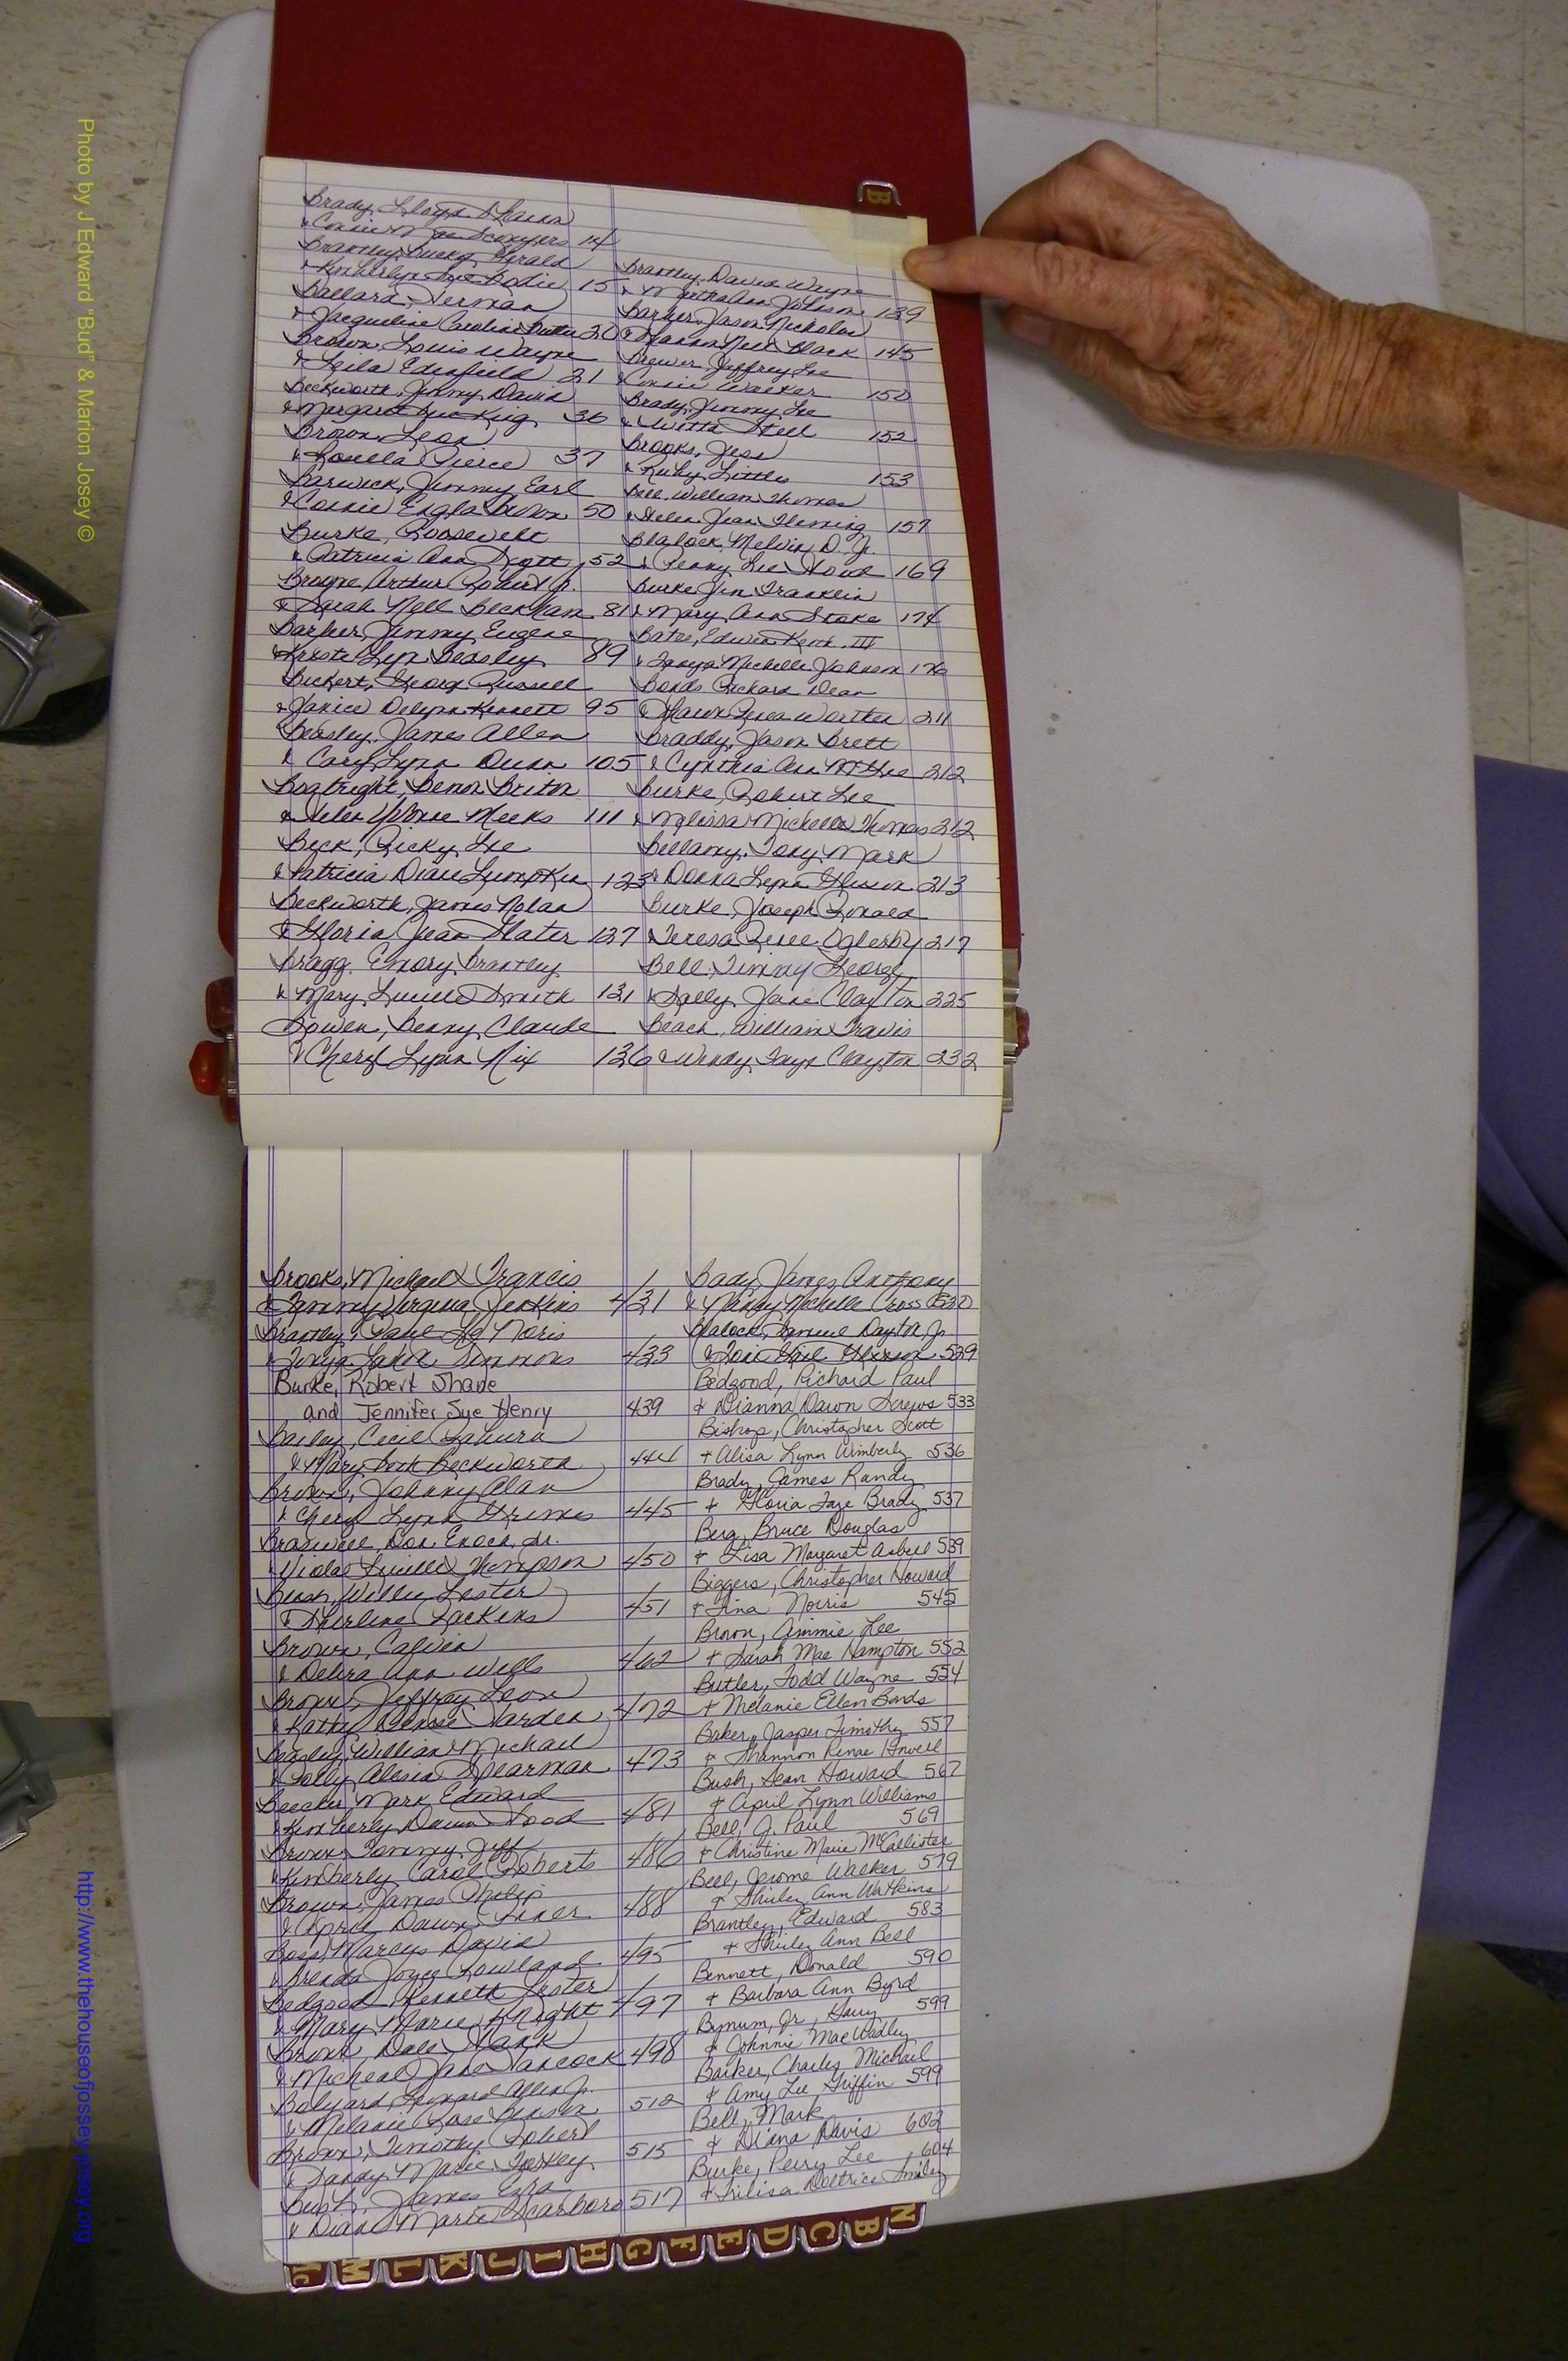 Photo by J Edward "Bud" & Marion Josey ©
http://www.thehouseofjossey-josey.org
B
Brady, Lloyd Shawn
& Connie Mae Scongers 14
Brantley, Bucky Gerald
& Kimberlyn Sue Bodie 15
Ballard, Herman
& Jacqueline Caroline 20
Brown, Louis Wayne
& Leila Edenfield 21
Beckworth, Jimmy David
& Margaret Sue King 36
Brown, Leon
& Louella Pierce 37
Barwick, Jimmy Earl
& Connie Engla Brown 50
Burke, Roosevelt
& Patricia Ann Scott 52
Arthur Robert Jr.
& Sarah Nell Beckham 81
Barker, Jimmy Eugene
Lyn Beasley 89
Bickert, George Russell
& Janice Delynn Kennett 95
Beasley, James Allen
& Cary Lynn Dunn 105
Boatright, Benon Briton
& Helen Yvonne Meeks 111
Beck, Ricky Lee
& Patricia Diane Lumpkin 123
Beckworth, James Nolan
& Gloria Jean Slater 127
Bragg, Emory Brantley
& Mary Lucille Smith 131
Bowen, Benny Claude
& Cheryl Lynn Nix 136
Brantley, David Wayne
& Martha Ann Johnson 139
Barker, Jason Nicholas
& Shanna Nell Black 145
Brewer, Jeffrey Lee
Connie Walker 150
Brady, Jimmy Lee
& Witta Steel 152
Brooks, Jess
& Ruby Little 153
Bell, William Thomas
& Helen Jean Fleming 157
Blalock, Melvin D. Jr.
& Penny Lee Hood 169
Burke, Jim Franklin
& Mary Ann Stoke 174
Bates, Edwin Keith III
& Tanya Michelle Johnson 176
Bonds, Richard Dean
& Dawn Renea Worthen 211
Braddy, Jason Brett
& Cynthia Ann McGee 212
Burke, Robert Lee
& Melissa Michelle Thomas 212
Bellamy, Tony Mark
& Donna Lynn 213
Burke, Joseph Ronald
Teresa Renee Oglesby 217
Bell, Jimmy George
& Sally Jane Clayton 225
Beach, William Travis
& Wendy Faye Clayton 232
Brooks, Michael Francis
& Tammy Virginia Jenkins 431
Brantley, Paul La Noris
& Tonya Simmons 433
Burke, Robert Shane
and Jennifer Sue Henry 439
Bailey, Cecil
& Mary Beth Beckworth 444
Brown, Johnny Alan
& Cheryl Lynn Grimes 445
Braswell, Don Enoch, Sr.
Viola Lucille Thompson 450
Bush, Willie Lester
& Shirline Lockens 451
Brown, Calvin
& Debra Ann Wells 462
Brown, Jeffrey Leon
& Kathy Denise Harden 472
Beasley, William Michael
& Polly Alesia Spearman 473
Becker, Mark Edward
& Kimberly Dawn Hood 481
Brown, Tommy Jeff
Kimberly Carol Roberts 486
Brown, James Philip
& April Dawn Finer 488
Boss, Marcus David
& Brenda Joyce Rowland 495
Bedgood, Kenneth Lester
& Mary Marie Knight 497
Brown, Dale Hank
& Micheal Jane Hancock 498
Bolyard, Leonard Allen Jr.
& Melanie Rose Benson 512
Brown, Timothy Robert
& Sandy Marie Yawkey 515
Bush, James Ezra
& Diane Marie Scarboro 517
Bady, James Anthony
& Mandy Michelle Cross 520
Blalock, Samuel Dayton, Jr
& Toni Gail 529
Bedgood, Richard Paul
& Dianna Dawn Screws 533
Bishop, Christopher Scott
+ Alisa Lynn Wimberly 536
Brady, James Randy
+ Gloria Faye Brady 537
Berg, Bruce Douglas
+ Lisa Margaret Asbell 539
Biggers, Christopher Howard
+ Tina Norris 545
Brown, Aimmie Lee
+ Sarah Mae Hampton 552
Butler, Todd Wayne 554
+ Melanie Ellen Bonds
Baker, Jasper Timothy 557
+ Shannon Renae Howell
Bush, Sean Howard 567
+ April Lynn Williams
Bell, J. Paul 569
+ Christine Marie McCallister
Bell, Jerome Walker 579
+ Shirley Ann Watkins
Brantley, Edward 583
+ Shirley Ann Bell
Bennett, Donald 590
+ Barbara Ann Byrd
Bynum, Jr, Harry 599
& Johnnie Mae Wadley
Barker, Charles Michael
+ Amy Lee Griffin 599
Bell, Mark
& Diana Davis 602
Burke, Perry Lee 604
+ Trilisa Deltrice Smiley
Mc M L K J I H G F E D C B N